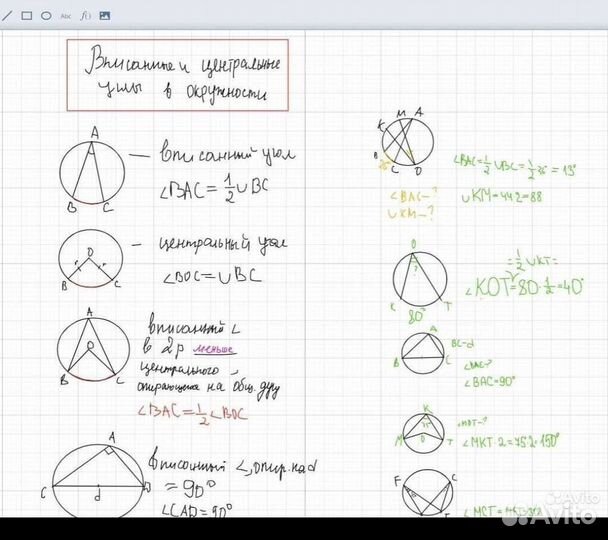 Вписанные и центральные
углы в окружности
A
B
C
— вписанный угол
∠BAC = 1/2 ∪BC
O
r
r
B
C
— центральный угол
∠BOC = ∪BC
A
O
B
C
вписанный ∠
в 2р меньше
центрального,
опирающегося на общ. дугу
∠BAC = 1/2 ∠BOC
A
C
d
D
вписанный ∠, опир. на d
= 90°
∠CAD = 90°
M A
K
B
C O
∠BAC = 1/2 ∪BC = 1/2 · 26 = 13°
∪KM = 44·2 = 88
∠BAC - ?
∪KM - ?
O
?
K
T
80°
= 1/2 ∪KT =
∠KOT = 80 · 1/2 = 40°
A
B
C
BC - d
∠BAC - ?
∠BAC = 90°
K
75°
O
M
T
∠MOT - ?
∠MKT · 2 = 75·2 = 150°
F
C
Avito
Avito